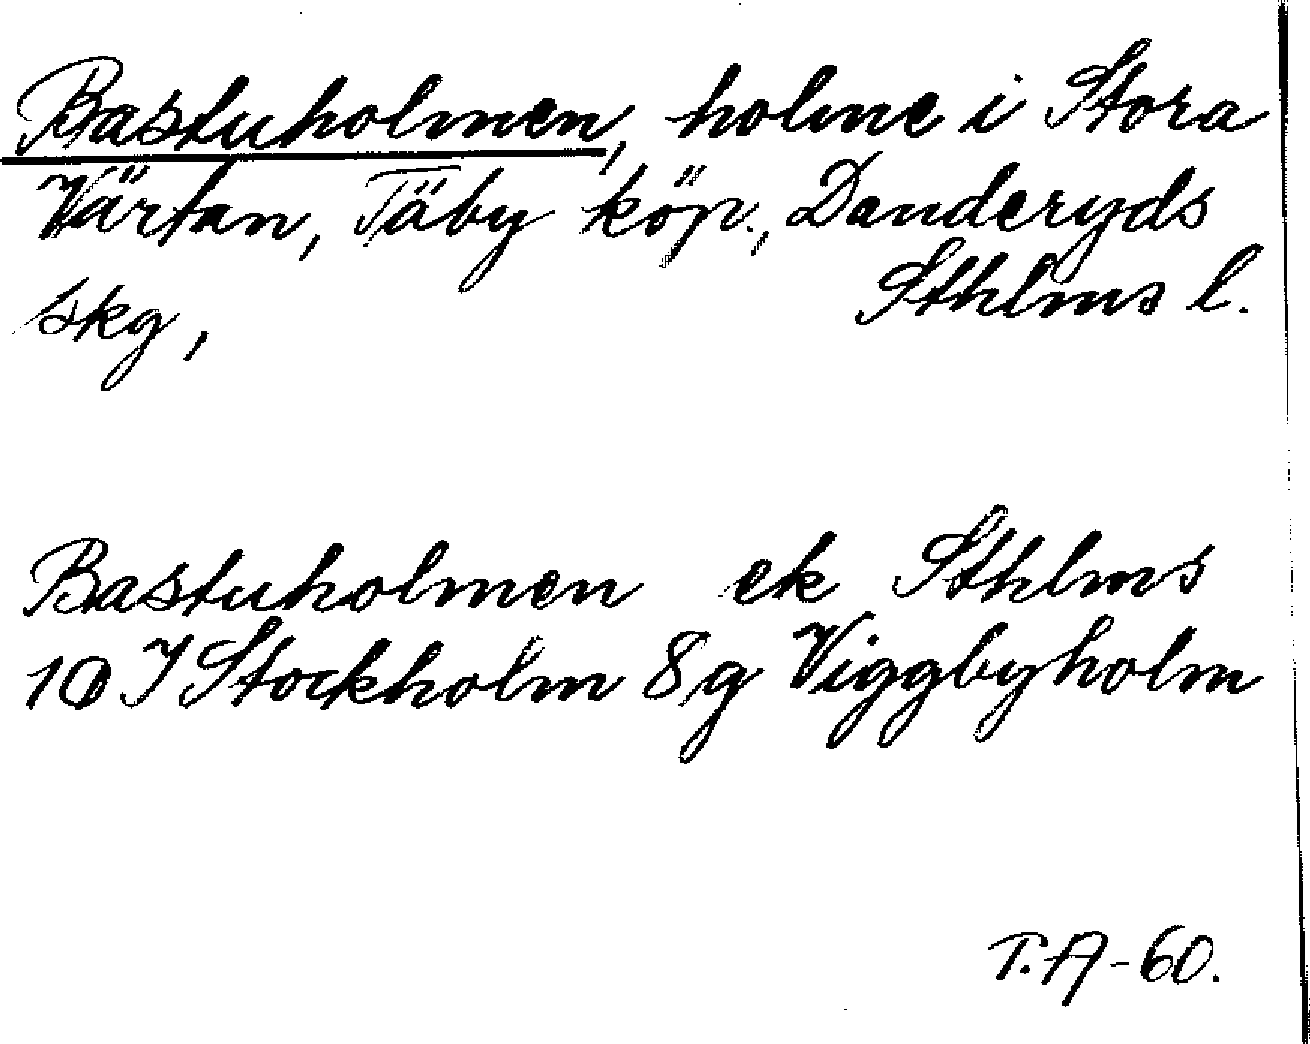 Bastuholmen, holme i Stora
Värtan, Täby köp., Danderyds
skg, Sthlms l.
Bastuholmen ek Sthlms
10 I Stockholm 8g Viggbyholm
T.A-60.